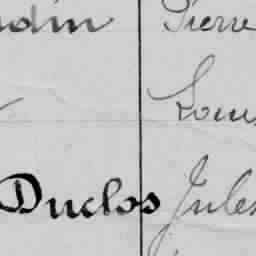 Pierre
Louis
Duclos Jules